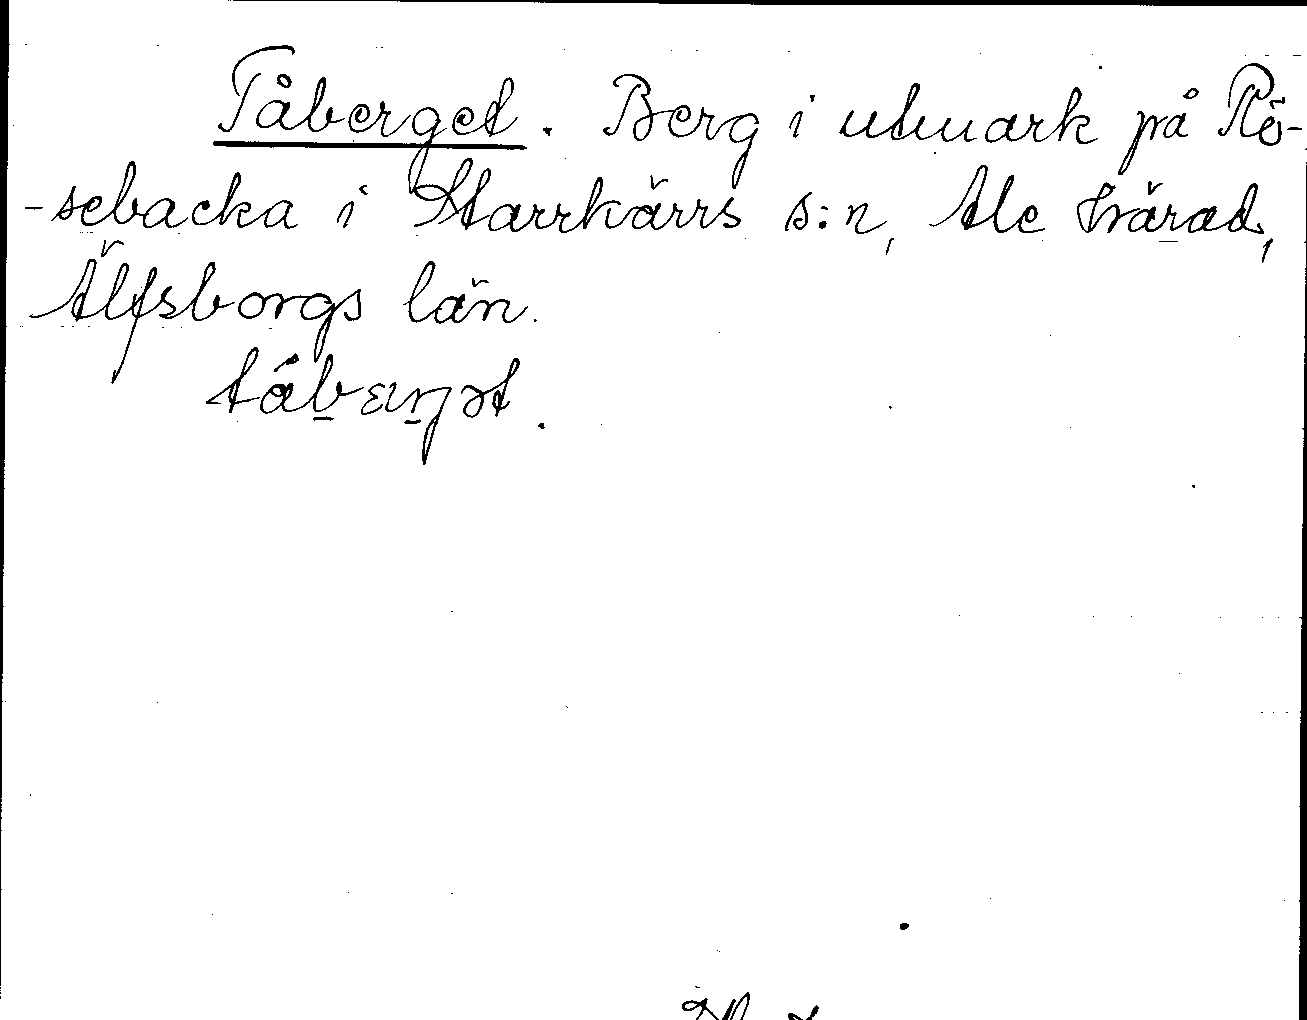 Tåberget. Berg i utmark på Rö-
-sebacka i Starrkärrs s:n, Ale härad,
Älfsborgs län.